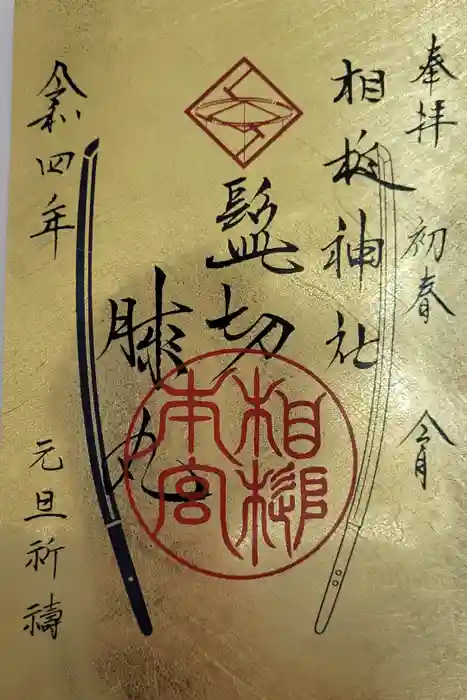 奉拝 初春 令月
相槌神社
髭切
膝丸
相槌
本宮
令和四年
元旦祈禱